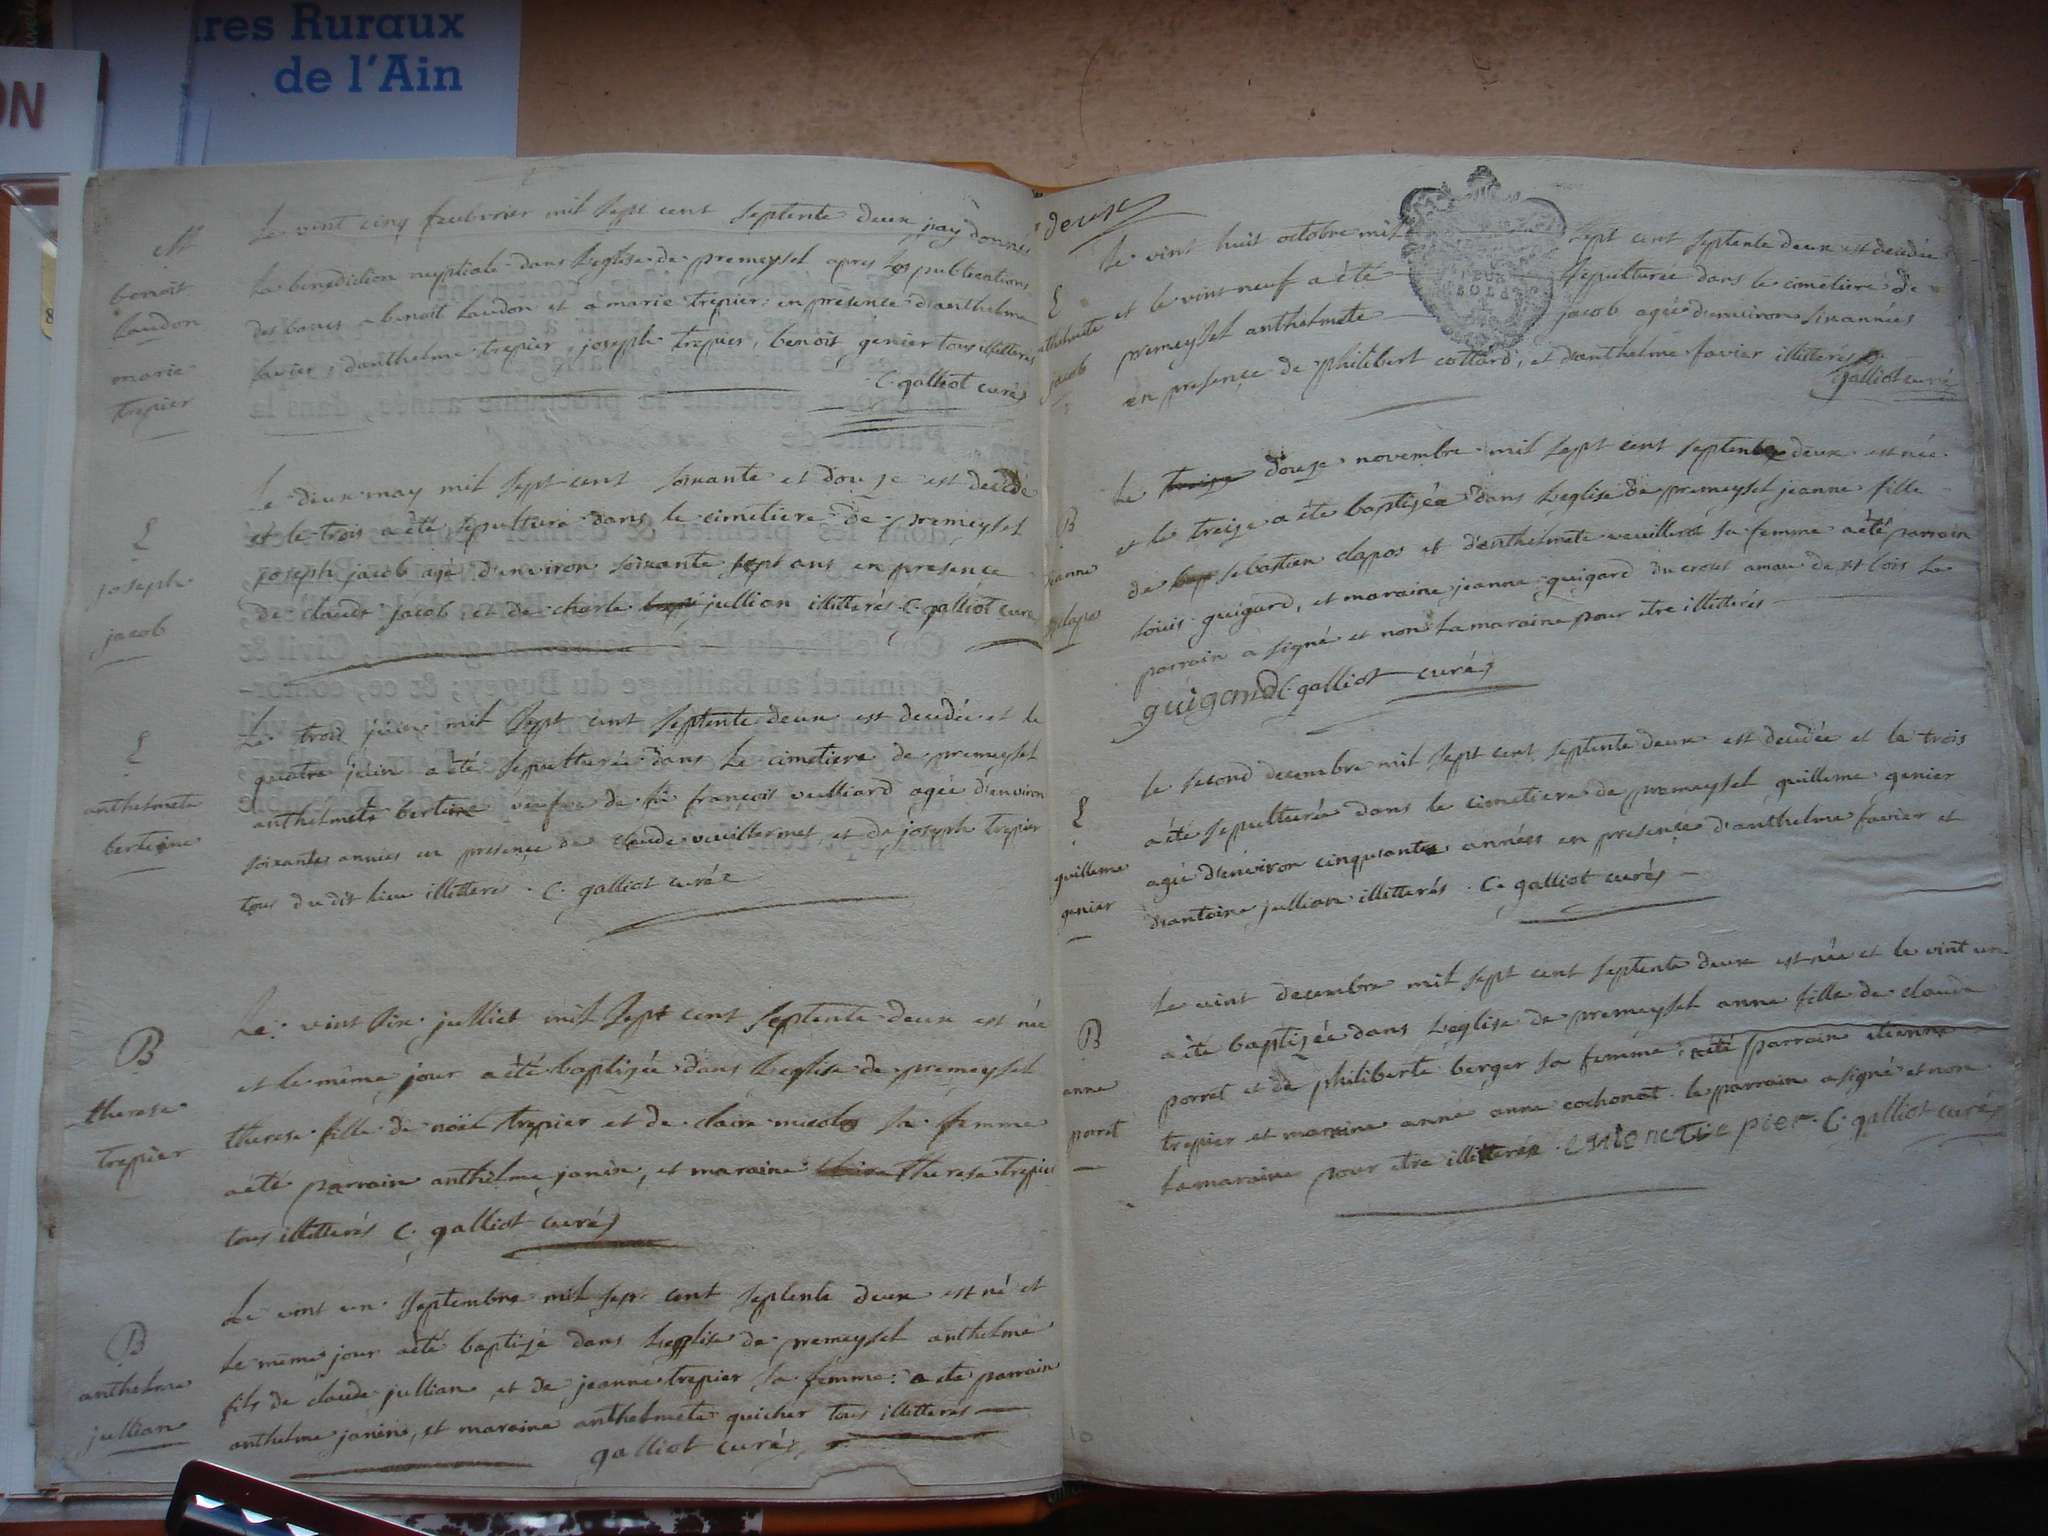 ires Ruraux
de l'Ain
ON
M
benoit
laudon
marie
trepier
Le vint cinq feubvrier mil sept cent septente deux jay donnes
la benediction nuptiale dans l'eglise de premeysel apres les publications
des bancs a benoit laudon et a marie trepier: en presence d'anthelme
favier, d'anthelme trepier, joseph trepier, benoit genier tous illitterés
C. galliot curés
L
joseph
jacob
Le deux may mil sept cent soixante et douze est decedé
et le trois a été sepulturé dans le cimetiere de premeysel
joseph jacob agé d'environ soixante sept ans en presence
de claude jacob, et de charle jullian illitterés C. galliot curé
L
anthelmete
bertine
Le trois juin mil sept cent septente deux est decedée et le
quatre juin a été sepulturée dans le cimetiere de premeysel
anthelmete bertine veufve de fû françois veilliard agée d'environ
soixantes années en presence de claude vuillermet, et de joseph trepier
tous du dit lieu illittere. C. galliot curés
B
therese
trepier
Le vint six julliet mil sept cent septente deux est née
et le même jour a été baptizée dans l'eglise de premeysel
therese fille de noël trepier et de claire nicolas sa femme
a été parrain anthelme janin, et maraine therese trepier
tous illitterés C. galliot curés
B
anthelme
jullian
Le vint un septembre mil sept cent septente deux est né et
le même jour a été baptizé dans l'eglise de premeysel anthelme
fils de claude jullian et de jeanne trepier sa femme: a été parrain
anthelme janin, et maraine anthelmete quicher tous illitterés
galliot curés
deux
L
anthelmete
jacob
le vint huit octobre mil sept cent septente deux est decedée
et le vint neuf a été sepulturée dans le cimetiere de
premeysel anthelmete jacob agée d'environ six années
en presence de philibert cottard, et d'anthelme favier illitterés C.
galliot curé
B
jeanne
clapos
Le douze novembre mil sept cent septente deux est née
et le treize a été baptizée dans l'eglise de premeysel jeanne fille
de sebastien clapos et d'anthelmete veuillerot sa femme a été parrain
louis guigard, et maraine jeanne guigard du croset amau de st bois le
parrain a signé et non la maraine pour etre illitterés
guigard C. galliot curés
L
guilleme
genier
le second decembre mil sept cent septente deux est decedée et le trois
a été sepulturée dans le cimetiere de premeysel guilleme genier
agée d'environ cinquante années en presence d'anthelme favier et
d'antoine jullian illitterés. C. galliot curés
B
anne
porret
Le vint decembre mil sept cent septente deux est née et le vint un
a été baptizée dans l'eglise de premeysel anne fille de claude
porret et de philiberte berger sa femme: a été parrain etienne
trepier et maraine anne anne cochonat. le parrain a signé et non
la maraine pour etre illitterée. etienetrepier. C. galliot curés
10